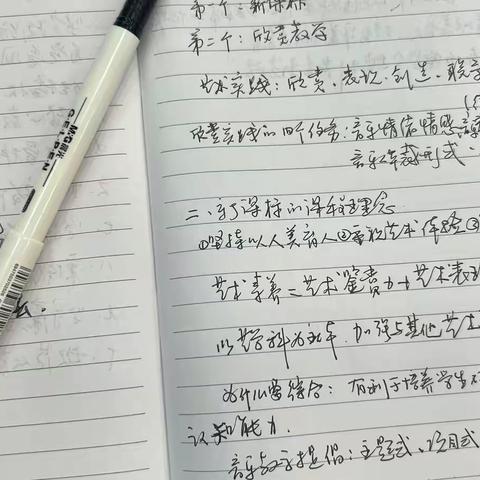 第一个:新课标
第二个:欣赏教学
艺术实践:欣赏、表现、创造、联
欣赏实践的四个任务:音乐情绪情感
音乐体裁形式.
二、新课标的课程理念
①坚持以美育人②重视艺术体验③
艺术素养=艺术鉴赏力+艺术表现
以学科为本.加强与其他艺术
为什么要综合:有利于培养学生
认知能力.
音乐教学提倡:主题式、项目式
M&G 晨光
GEL PEN